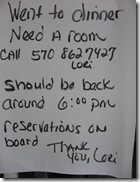 Went to dinner
Need A room
CALL 570 862 7427
Lori
should be back
around 6:00 pm
reservations on
board
THANK
YOU, Lori